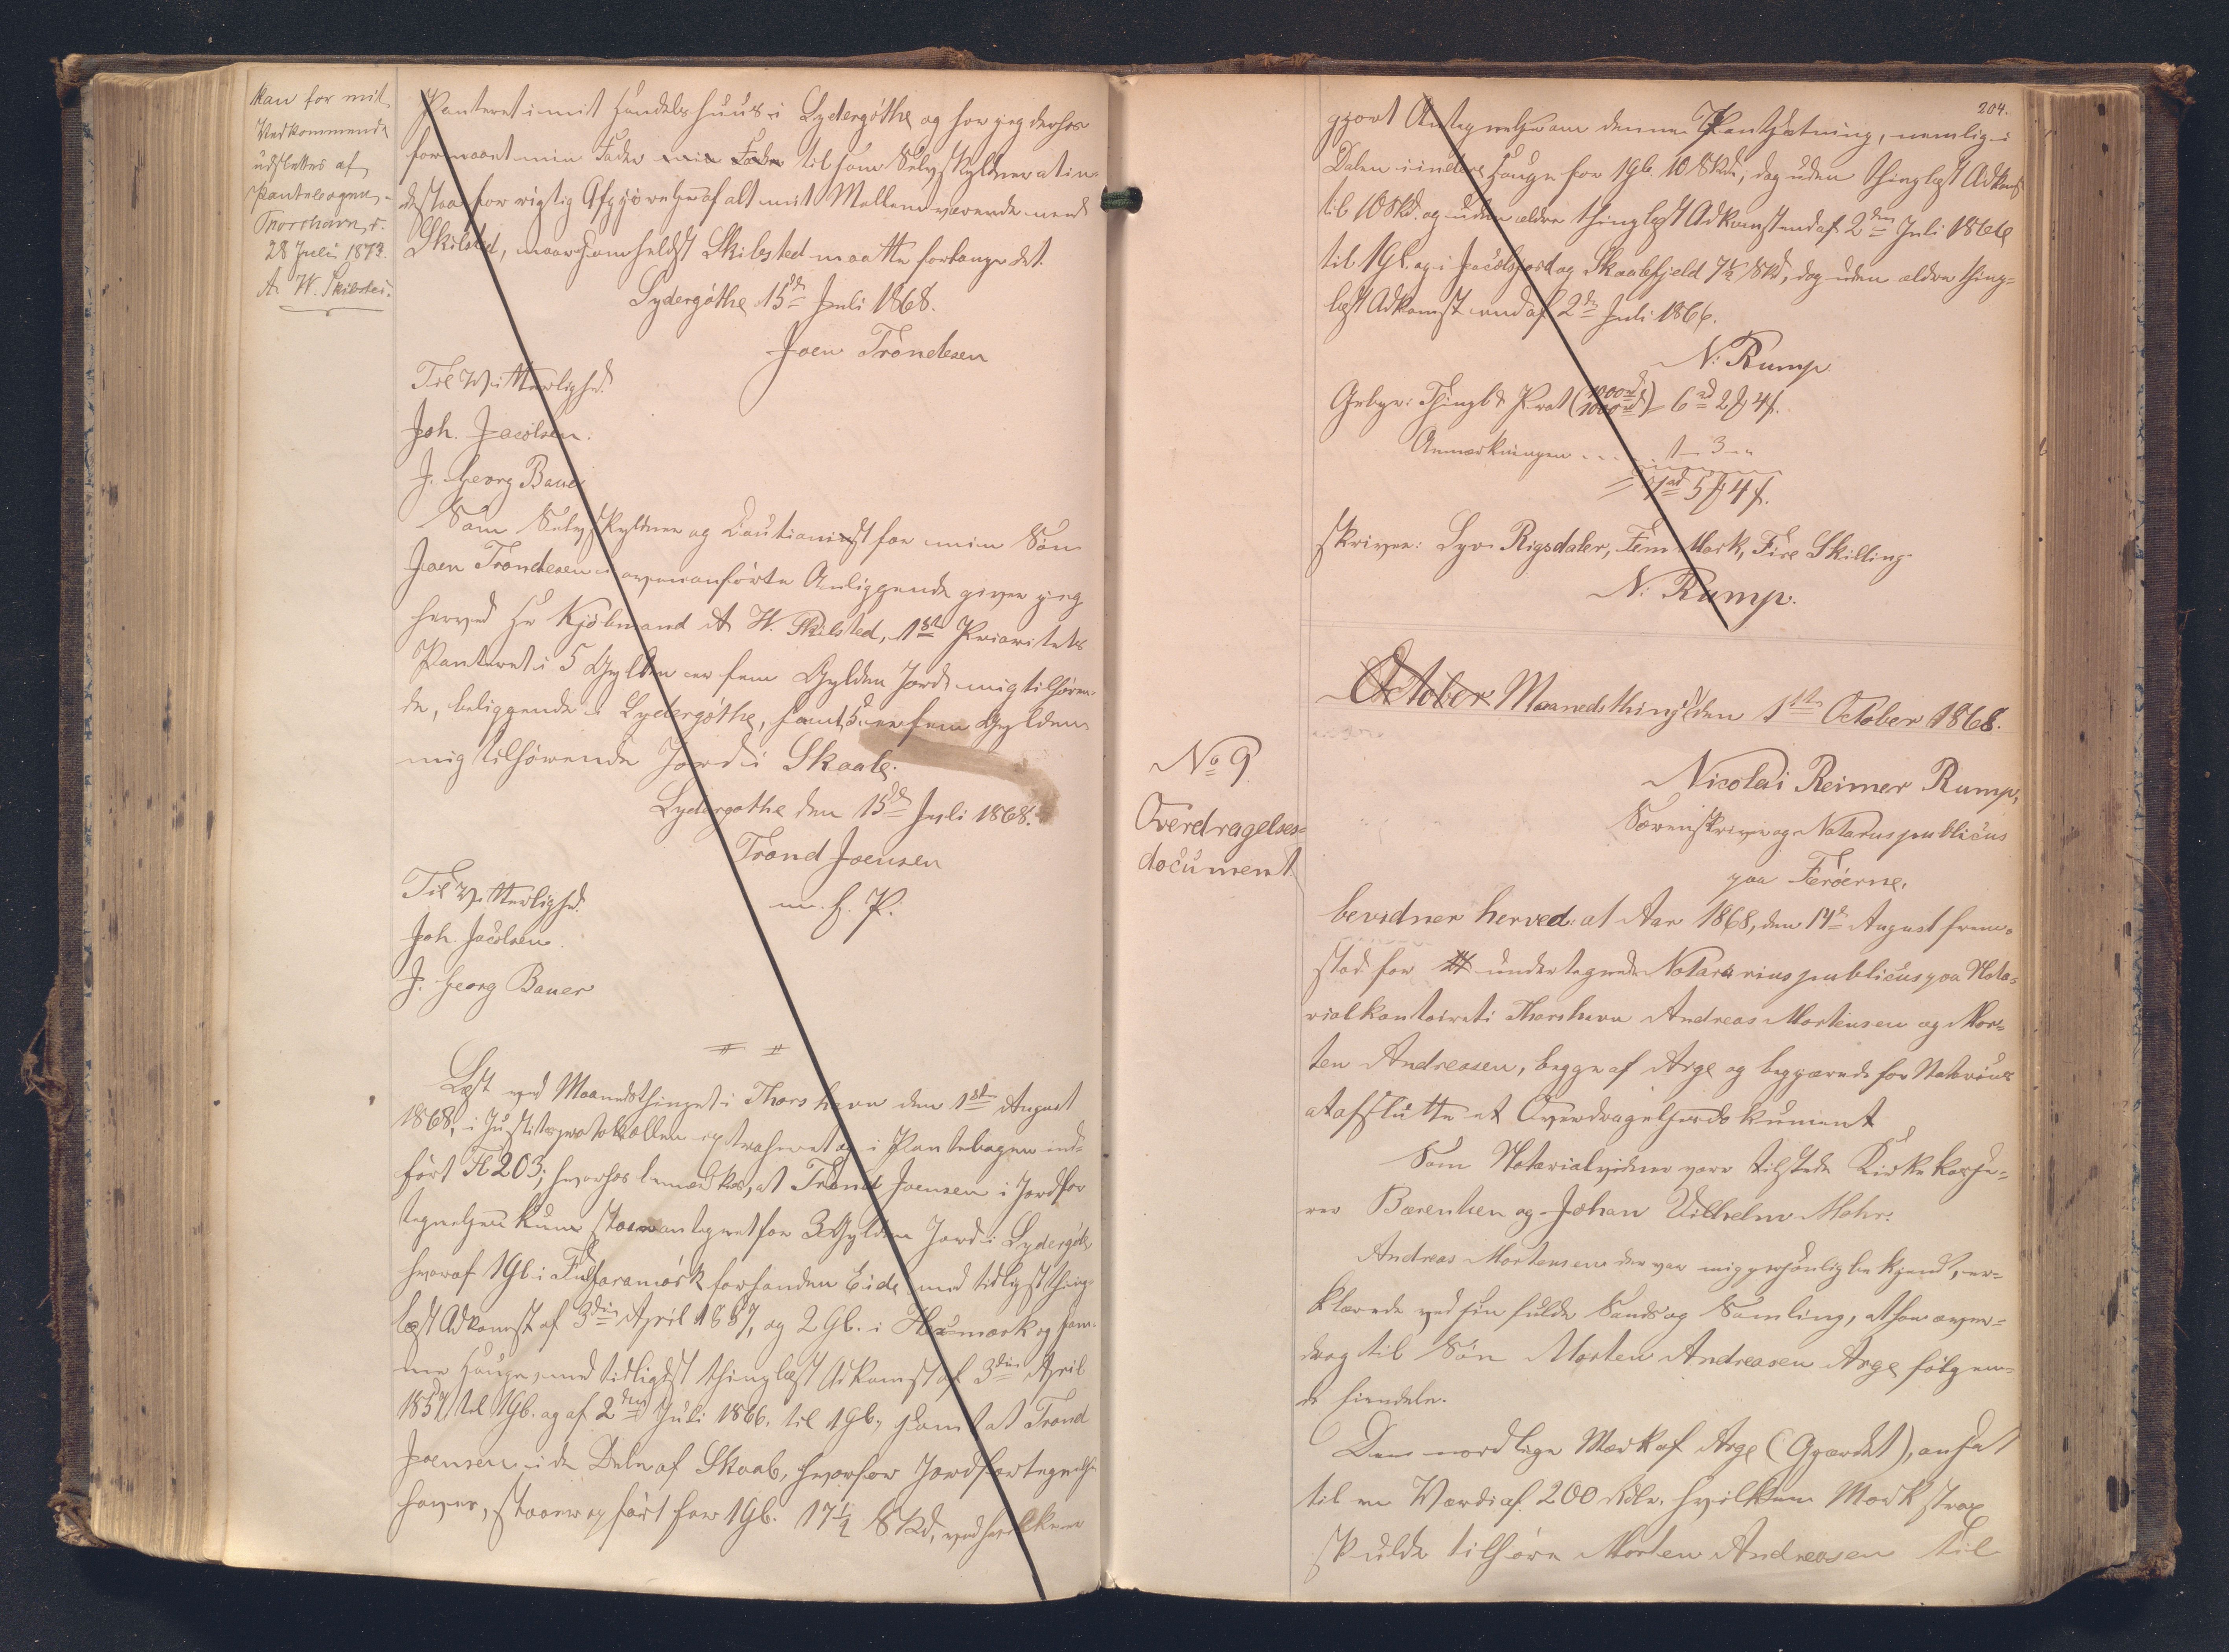 kan for mit
Vedkommende
udslettes af
Pantebogen,
Thorshavn, d.
28 Juli 1873.
A. W. Skibsted.
Panteret i mit Handelshuus i Lydergöthe og har jeg derhos
formaaet min Fader til som Selvskyldner at in-
destaae for rigtig Afgjörelse af alt mit Mellemværende med
Skibsted, naarsomhelst Skibsted maatte forlange det.
Lydergöthe 15de Juli 1868.
Joen Tröndesen
Til Vitterlighed.
Joh. Jacobsen.
J. Georg Bauer
Som Selvskyldner og Cautionist for min Sön
Joen Tröndesen i ovenanförte Anliggende giver jeg
herved Hr Kjöbmand A W. Skibsted, 1ste Prioritets
Panteret i 5 Gylden er fem Gylden Jord mig tilhören-
de, beliggende i Lydergöthe, samt 5 er fem Gylden
mig tilhörende Jord i Skaale.
Lydergöthe den 15de Juli 1868.
Trönd Joensen
m. f. P.
Til Vitterlighed.
Joh. Jacobsen.
J. Georg Bauer
Læst ved Maanedsthinget i Thorshavn den 1ste August
1868, i Justitsprotokollen extraheret og i Pantebogen ind-
fört Fl 203; hvorhos bemærkes, at Trönd Joensen i Jordfor
tegnelsen kun staaer antegnet for 3 Gylden Jord i Lydergöthe
hvoraf 1 Gl. i forhenden Eide med tidligst thing-
læst Adkomst af 3die April 1857, og 2 Gl. i Heimark og
Hauge, med tidligst thinglæst Adkomst af 3die April
1857 til 1 Gl. og af 2den Juli 1866 til 1 Gl., samt at Trönd
Joensen i de Dele af Skaale, hvorfor Jordfortegnelse
haves, staaer opfört for 1 Gl. 17½ Skd, ved hvilken
204.
gjort Antegnelse om denne Pantsætning, nemlig i
Dalen i indre Hauge for 1 Gl. 10 Skd, dog uden thinglæst Adkomst
til 10 Skd. og uden ældre thinglæst Adkomst end af 2den Juli 1866
til 1 Gl. og i Jacobsjord og Skaalefjeld 7½ Skd, dog uden ældre thing-
læst Adkomst end af 2den Juli 1866.
N: Rump
Gebyr: Thingl. & Prot (1000rd 1000rd) 6rd 2 ℳ 4 ſ.
Anmærkningen . . . 1 - 3 - "
= 7rd 5 ℳ 4 ſ.
skriver: Syv Rigsdaler, Fem Mark, Fire Skilling.
N: Rump.
October Maanedsthing den 1ste October 1868.
No 9.
Overdragelses=
document
Nicolai Reimer Rump,
Sorenskriver og Notarus publicus
paa Feröerne,
bevidner herved: at Aar 1868, den 14de August frem-
stod for undertegnede Notarius publicus paa Nota-
rialkontoiret i Thorshavn Andreas Mortensen og Mor-
ten Andreasen, begge af Arge og begjærede for Notarius
at afslutte et Overdragelsesdokument
Som Notarialvidner vare tilstede Kirkekasse-
rer Bærentsen og Johan Vilhelm Mohr.
Andreas Mortensen der var mig personlig bekjendt, er-
klærede ved sin fulde Sands og Samling, at han over-
drog til Sön Morten Andreasen Arge fölgen-
de Eiendele.
Den nordlige Mark af Arge (Gjærdet), ansat
til en Værdi af 200 Rdlr. hvilken Mark strax
skulde tilhöre Morten Andreasen til